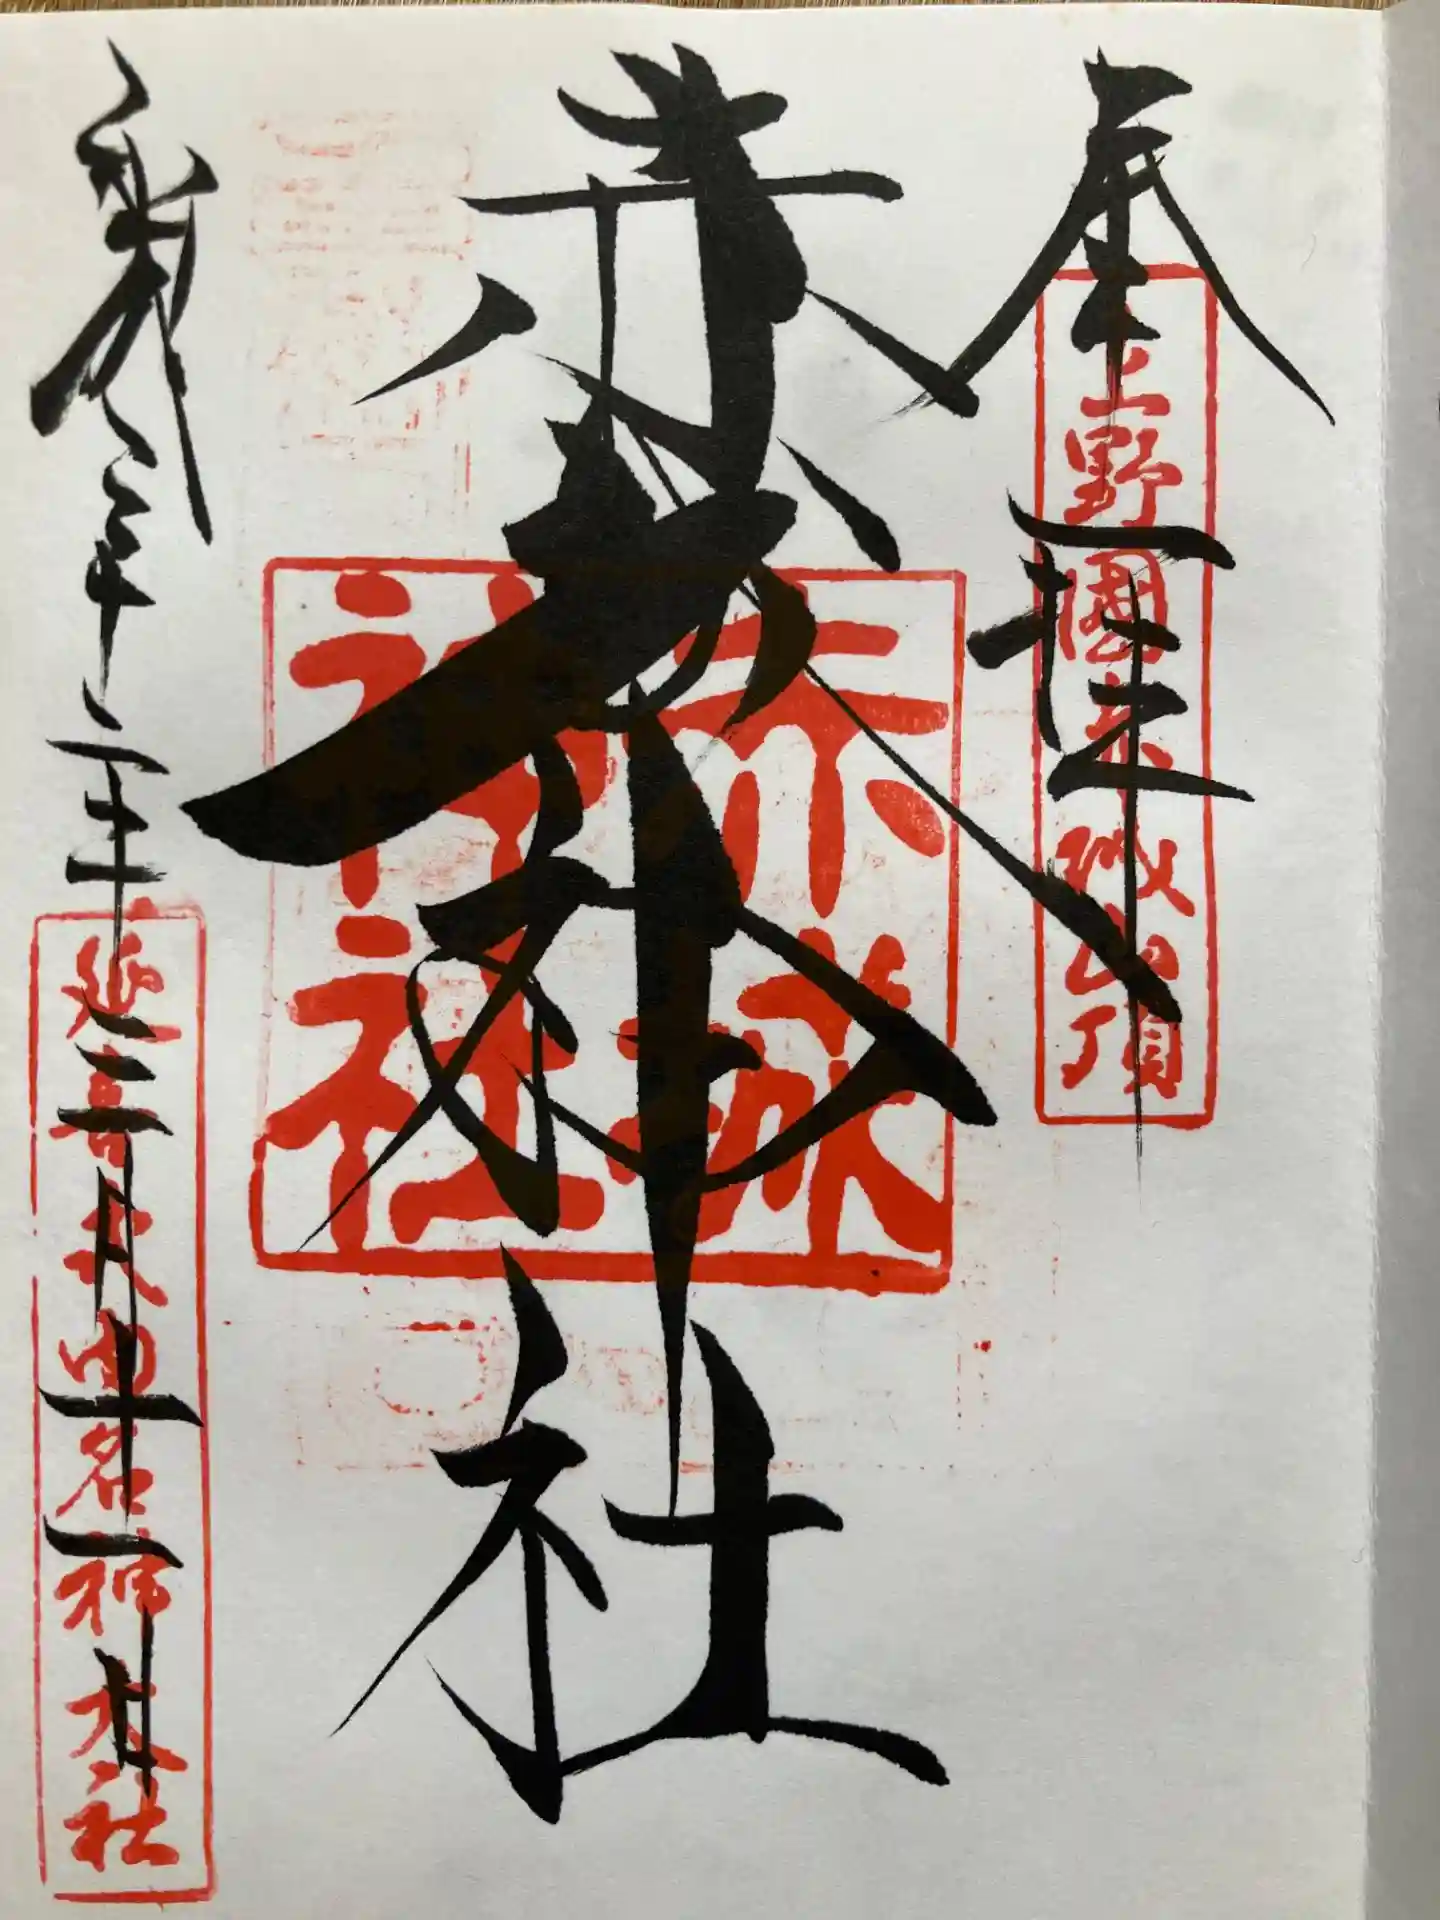 奉拝
上野國赤城山頂
赤城神社
赤城神社
月十一日
延喜式内名神大社